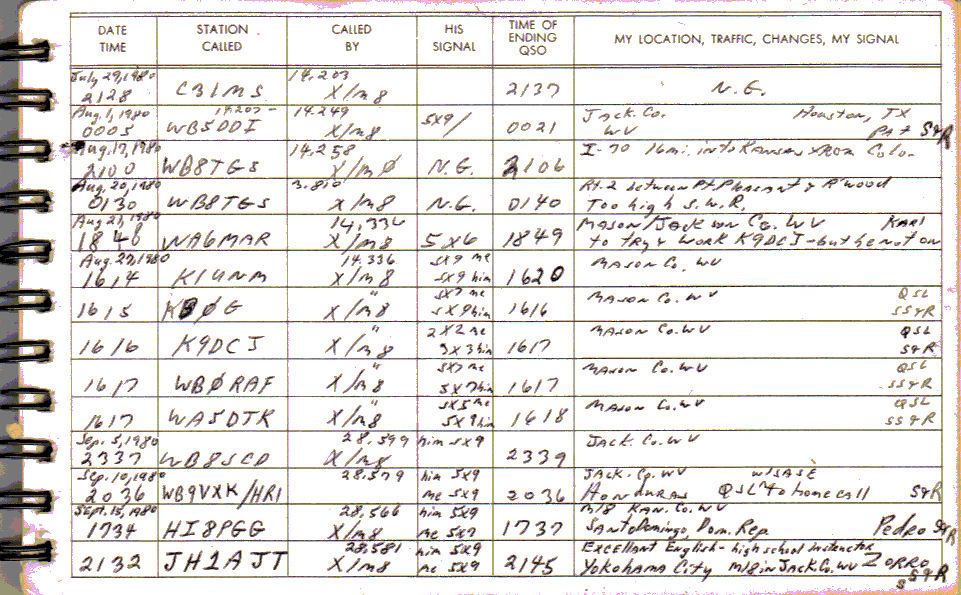 DATE TIME STATION CALLED CALLED BY HIS SIGNAL TIME OF ENDING QSO MY LOCATION, TRAFFIC, CHANGES, MY SIGNAL
July 29, 1980 14.203
2128 C31MS X/m8 2137 N.G.
Aug. 1, 1980 14.207 – 14.249 Jack. Co. Houston, TX
0005 WB5DDI X/m8 5x9/ 0021 WV Pat S&R
Aug. 17, 1980 14.258 I-70 16mi. into Kansas from Colo.
2100 WB8TGS X/mØ N.G. 2106
Aug. 20, 1980 3.810 Rt. 2 between Pt. Pleasant & R'wood
0130 WB8TGS X/m8 N.G. 0140 Too high S.W.R.
Aug 21, 1980 14,336 Mason/Jackson Co. WV Karl
1848 WA6MAR X/m8 5x6 1849 to try & work K9DCJ - but he not on
Aug. 27, 1980 14.336 5x9 me Mason Co. WV
1614 K1UNM X/m8 5x9 him 1620
" 5x7 me Mason Co. WV QSL
1615 KBØG X/m8 5x9 him 1616 SS&R
" 2x2 me Mason Co. WV QSL
1616 K9DCJ X/m8 3x3 him 1617 S&R
" 5x7 me Mason Co. WV QSL
1617 WBØRAF X/m8 5x7 him 1617 SS&R
" 5x5 me Mason Co. WV QSL
1617 WA5DTK X/m8 5x9 him 1618 SS&R
Sep. 5, 1980 28.599 him 5x9 Jack. Co. WV
2337 WB8SCD X/m8 2339
Sep. 10, 1980 28.579 him 5x9 Jack. Co. WV
2036 WB9VXK/HR1 me 5x9 2036 Honduras QSL to home call S&R
Sept. 15, 1980 28.566 him 5x9 m/8 Kan. Co. WV
1734 HI8PGG X/m8 me 5x7 1737 Santo Domingo, Dom. Rep. Pedro S&R
28.581 him 5x9 Excellant English - high school instructor
2132 JH1AJT X/m8 me 5x9 2145 Yokohama City m/8 in Jack. Co. WV ZORRO
SS&R